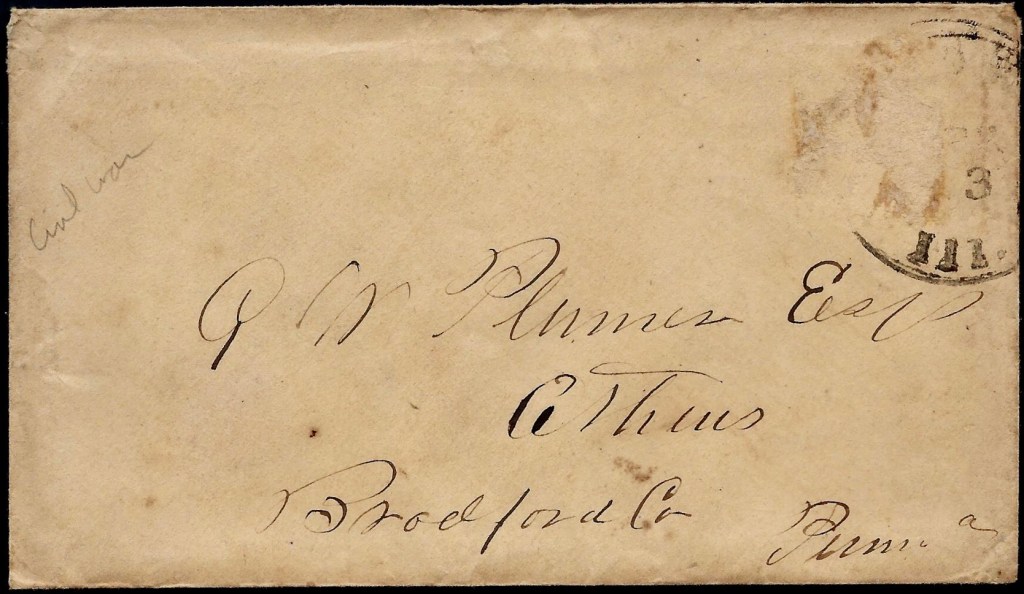 3
Ill.
Civil war
Plumer Esq
Athens
Bradford Co
Penn a